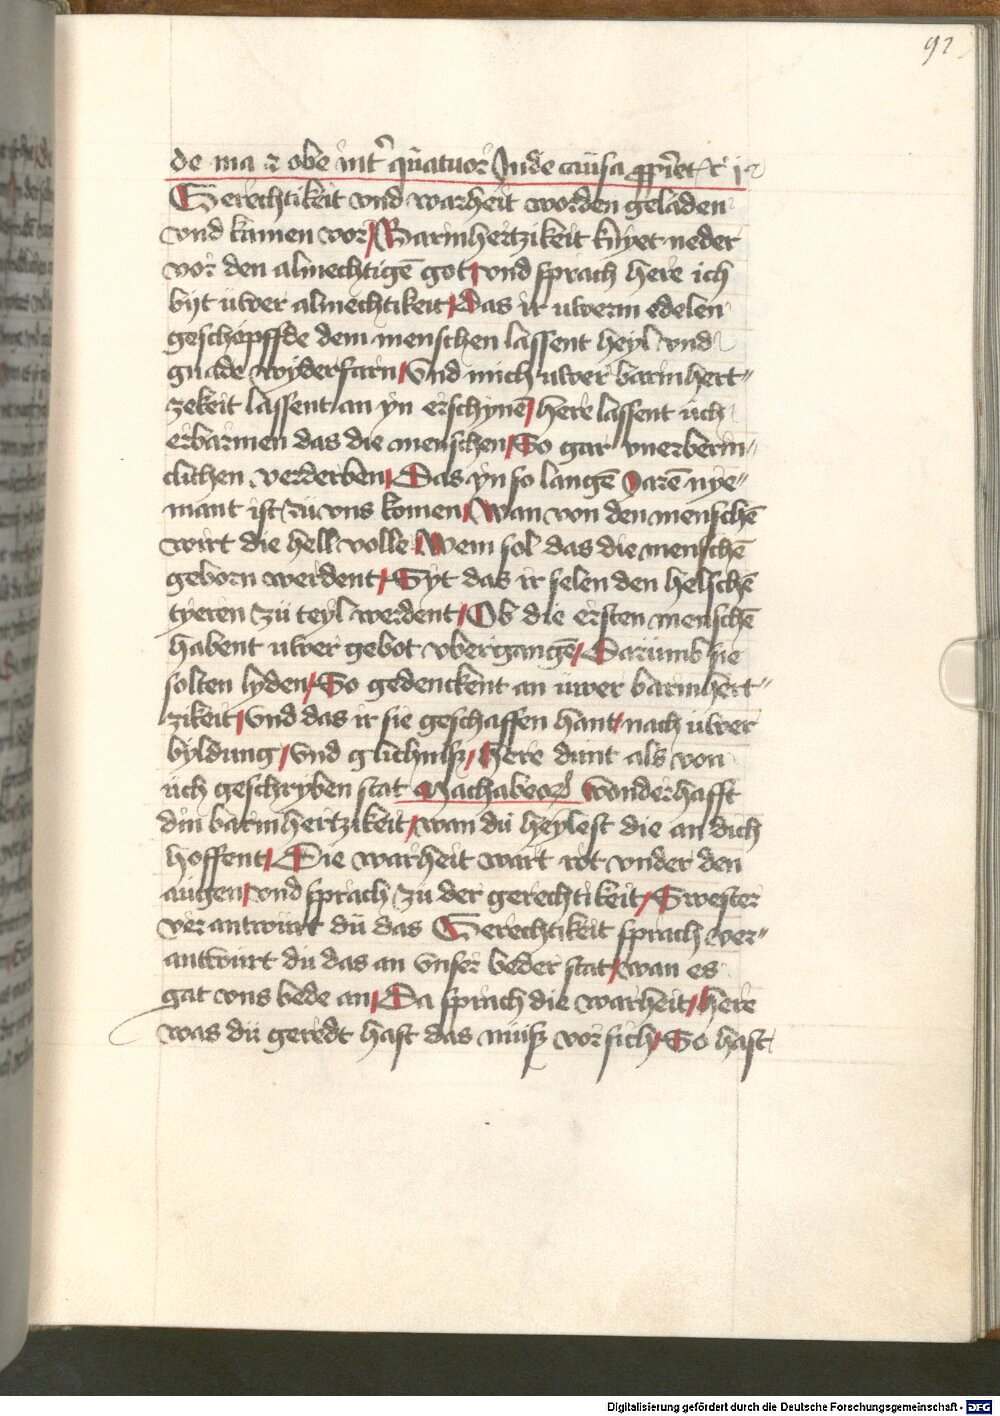 92
de ma ⁊ obe int̉ quatuor Inde causa
Gerechtikeit vnd warheit worden geladen
vnd kamen vor / Barmhertzikeit knyet neder
vor den almechtigē got / vnd sprach here ich
byt uwer almechtikeit / Das ir uwerm edelen
geschopffde dem menschen lassent heyl vnd
gnade wyderfarn / Vnd mich uwer barmhert″
zekeit lassent an yn erschynē / here lassent uch
erbarmen das die menschen / So gar vnerberm″
clichen verderben / Das yn so langē Jarē nye″
mant ist zu vns komen / Wan von den menschē
wirt die hell volle / Wem sol das die menschē
geborn werdent / Syt das ir selen den helschē
tyeren zu teyl werdent / Ob die ersten menschē
habent uwer gebot vbergangē / Darumb sie
solten lyden / So gedenckent an uwer barmhert″
zikeit / Vnd das ir sie geschaffen hant / nach uwer
byldung / Vnd glichnisz / Here dunt als von
uch geschryben stat Machabeoꝝ Wonderhafft
din barmhertzikeit / wan du heylest die an dich
hoffent / Die warheit wart rot vnder den
augen / vnd sprach zu der gerechtikeit / Swester
verantwurt du das Gerechtikeit sprach ver″
antwurt du das an vnser beder stat / wan es
gat vns bede an / Da sprach die warheit / here
was du geredt hast das musz vor sich / So hast
Digitalisierung gefördert durch die Deutsche Forschungsgemeinschaft - DFG